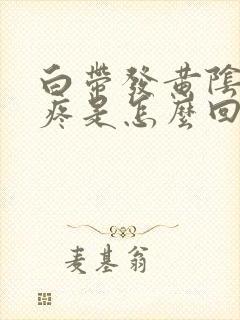 白帶發黃陰
疼是怎麼回
麦基翁